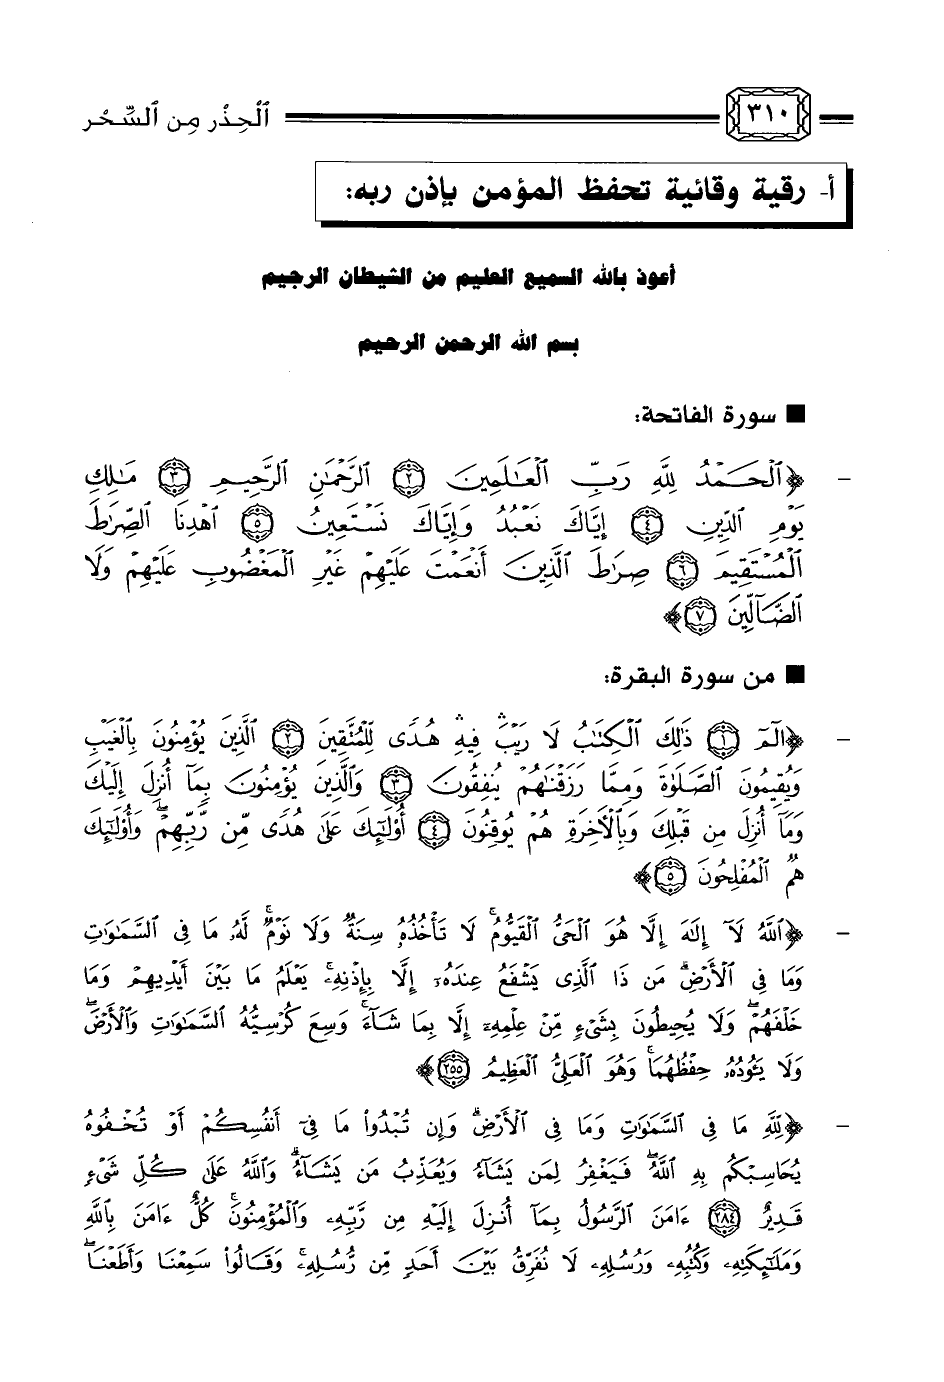 ٣١٠ ٱلْحِذْر مِن ٱلسِّحْر
أ- رقية وقائية تحفظ المؤمن بإذن ربه:
أعوذ بالله السميع العليم من الشيطان الرجيم
بسم الله الرحمن الرحيم
■ سورة الفاتحة:
- ﴿ٱلْحَمْدُ لِلَّهِ رَبِّ ٱلْعَٰلَمِينَ ٢ ٱلرَّحْمَٰنِ ٱلرَّحِيمِ ٣ مَٰلِكِ
يَوْمِ ٱلدِّينِ ٤ إِيَّاكَ نَعْبُدُ وَإِيَّاكَ نَسْتَعِينُ ٥ ٱهْدِنَا ٱلصِّرَٰطَ
ٱلْمُسْتَقِيمَ ٦ صِرَٰطَ ٱلَّذِينَ أَنْعَمْتَ عَلَيْهِمْ غَيْرِ ٱلْمَغْضُوبِ عَلَيْهِمْ وَلَا
ٱلضَّآلِّينَ ٧﴾
■ من سورة البقرة:
- ﴿الٓمٓ ١ ذَٰلِكَ ٱلْكِتَٰبُ لَا رَيْبَۛ فِيهِۛ هُدًى لِّلْمُتَّقِينَ ٢ ٱلَّذِينَ يُؤْمِنُونَ بِٱلْغَيْبِ
وَيُقِيمُونَ ٱلصَّلَوٰةَ وَمِمَّا رَزَقْنَٰهُمْ يُنفِقُونَ ٣ وَٱلَّذِينَ يُؤْمِنُونَ بِمَآ أُنزِلَ إِلَيْكَ
وَمَآ أُنزِلَ مِن قَبْلِكَ وَبِٱلْأَخِرَةِ هُمْ يُوقِنُونَ ٤ أُوْلَٰٓئِكَ عَلَىٰ هُدًى مِّن رَّبِّهِمْۖ وَأُوْلَٰٓئِكَ
هُمُ ٱلْمُفْلِحُونَ ٥﴾
- ﴿ٱللَّهُ لَآ إِلَٰهَ إِلَّا هُوَ ٱلْحَىُّ ٱلْقَيُّومُۚ لَا تَأْخُذُهُۥ سِنَةٌ وَلَا نَوْمٌۚ لَّهُۥ مَا فِى ٱلسَّمَٰوَٰتِ
وَمَا فِى ٱلْأَرْضِۗ مَن ذَا ٱلَّذِى يَشْفَعُ عِندَهُۥٓ إِلَّا بِإِذْنِهِۦۚ يَعْلَمُ مَا بَيْنَ أَيْدِيهِمْ وَمَا
خَلْفَهُمْۖ وَلَا يُحِيطُونَ بِشَىْءٍ مِّنْ عِلْمِهِۦٓ إِلَّا بِمَا شَآءَۚ وَسِعَ كُرْسِيُّهُ ٱلسَّمَٰوَٰتِ وَٱلْأَرْضَۖ
وَلَا يَـُٔودُهُۥ حِفْظُهُمَاۚ وَهُوَ ٱلْعَلِىُّ ٱلْعَظِيمُ ٢٥٥﴾
- ﴿لِّلَّهِ مَا فِى ٱلسَّمَٰوَٰتِ وَمَا فِى ٱلْأَرْضِۗ وَإِن تُبْدُوا۟ مَا فِىٓ أَنفُسِكُمْ أَوْ تُخْفُوهُ
يُحَاسِبْكُم بِهِ ٱللَّهُۖ فَيَغْفِرُ لِمَن يَشَآءُ وَيُعَذِّبُ مَن يَشَآءُۗ وَٱللَّهُ عَلَىٰ كُلِّ شَىْءٍ
قَدِيرٌ ٢٨٤ ءَامَنَ ٱلرَّسُولُ بِمَآ أُنزِلَ إِلَيْهِ مِن رَّبِّهِۦ وَٱلْمُؤْمِنُونَۚ كُلٌّ ءَامَنَ بِٱللَّهِ
وَمَلَٰٓئِكَتِهِۦ وَكُتُبِهِۦ وَرُسُلِهِۦ لَا نُفَرِّقُ بَيْنَ أَحَدٍ مِّن رُّسُلِهِۦۚ وَقَالُوا۟ سَمِعْنَا وَأَطَعْنَاۖ